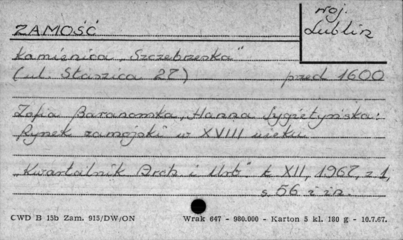 woj.
Lublin
ZAMOŚĆ
Kamienica „Szczebrzeska"
(ul. Staszica 27) przed 1600
Zofia Baranowska, Hanna Sygietyńska:
Rynek zamojski w XVIII wieku
„Kwartalnik Arch. i Urb." t. XII, 1967, z 1,
s. 56 i in.
CWD B 15b Zam. 913/DW/ON Wrak 647 - 980.000 - Karton 5 kl. 180 g - 10.7.67.